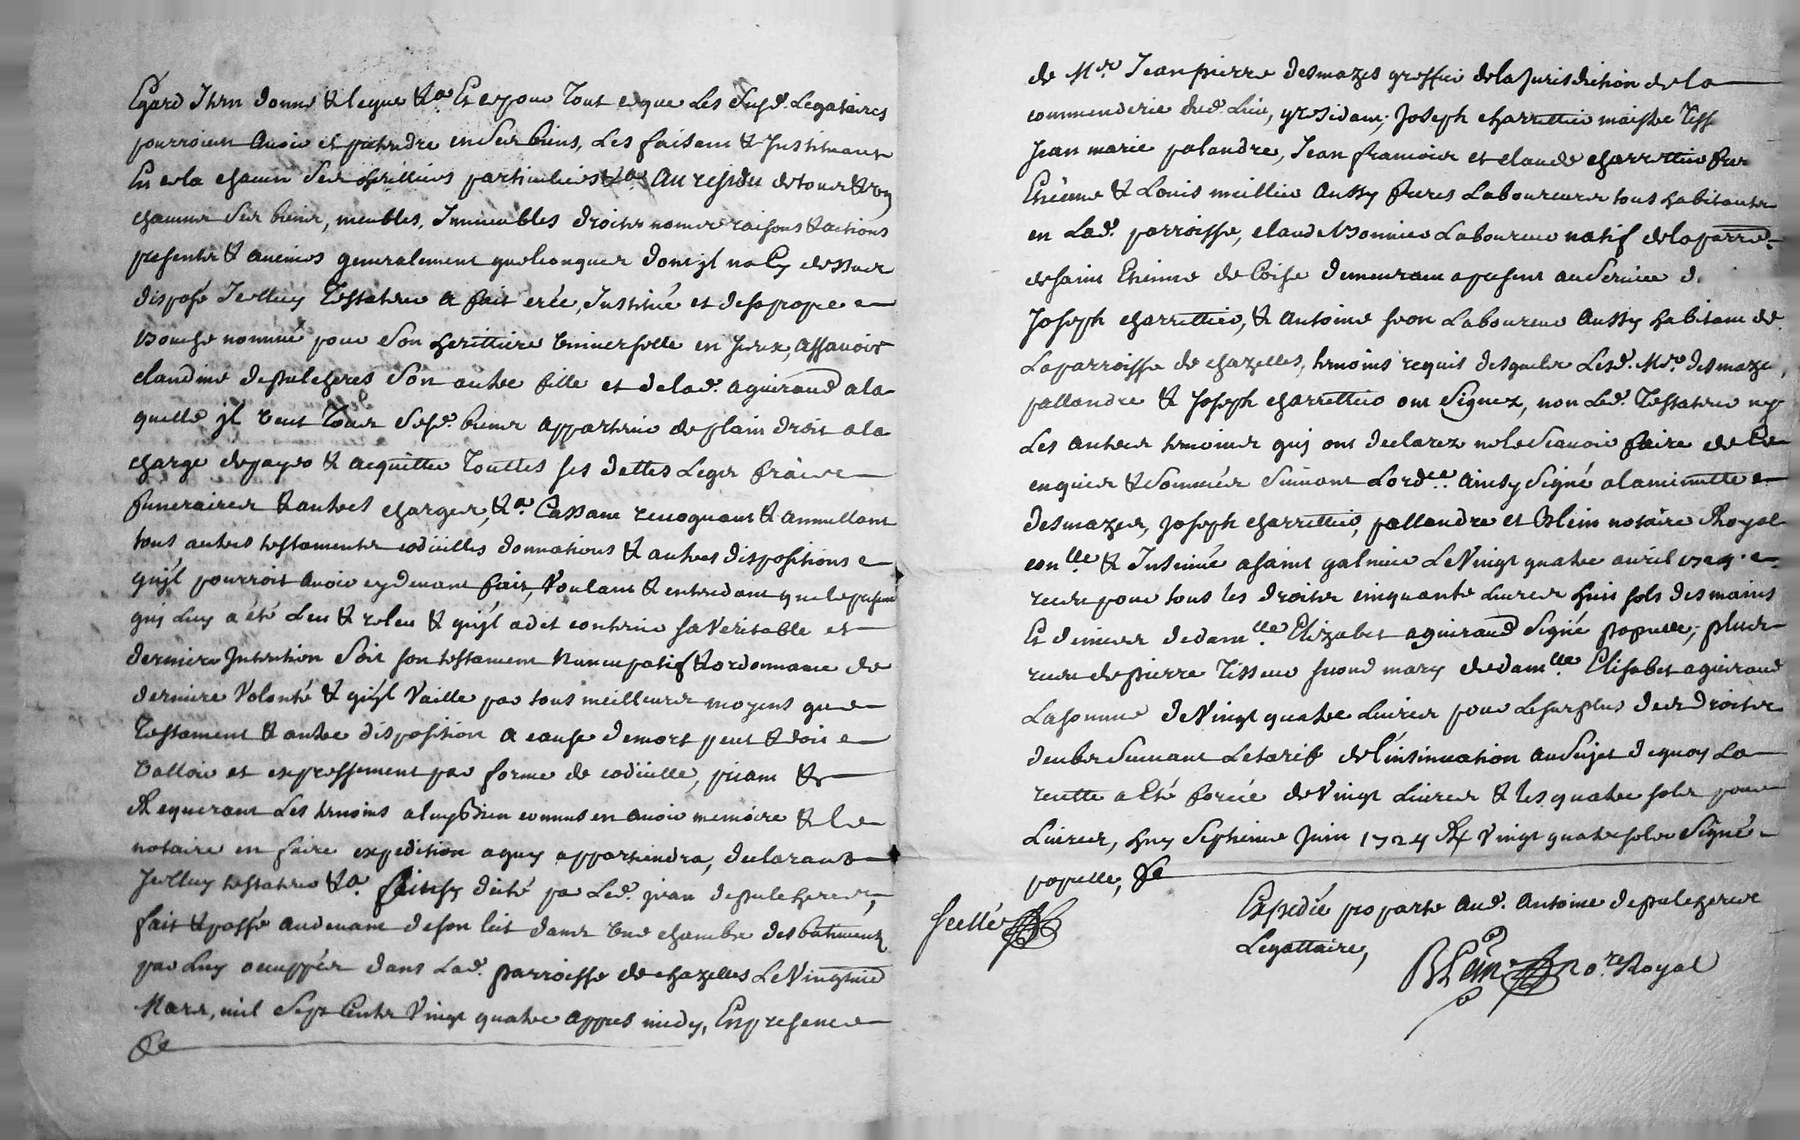 Egard Item donne & legue &a Et et pour Tout ce que Les Susd. Legataires
pourroient Avoir et pretendre en Ses biens, Les faisant & Instituant
En cela chacun Ses herittiers particuliers &a Au residu de tous & un
chacuns Ses biens, meubles, Immeubles droits noms raisons & actions
presents & avenirs generalement quelconques dont jl na Cy dessus
disposé Jcelluy Testateur a fait créé, Institué et de sa propre
bouche nommé pour Son herittiere Universelle en Jceux, Assavoir
claudine depulcheres Son autre fille et de lad. aguiraud a la
quelle jl veut Tous Sesd. biens appartenir de plain droit a la
charge de payer & acquitter Touttes ses dettes Legs fraix
funeraires & autres charges, &a Cassant revoquant & annullant
tous autres testaments codicilles donnations & autres dispositions
qu'jl pourroit avoir cy devant fait, Voulant & entendant que le present
quj Luy a été Leu & releu & qu'jl a dit contenir sa Veritable et
derniere Jntention Soit son testament Nuncupatif & ordonnance de
derniere Volonté & qu'jl Vaille par tous meilleurs moyens que
Testament & autre disposition a cause de mort peut & doit
valloir et expressement par forme de codicille, priant &
Requerant Les temoins a luy Bien connus en avoir memoire & le
notaire en faire expedition a quy appartiendra, declarant
Jcelluy testateur &a dicté par Led. jean depulcheres,
fait & passé au devant de son lit dans une chambre des batiments
par Luy occuppés dans Lad. parroisse de chazelles Le Vingtrie
Mars, mil Sept Cents Vingt quatre appres midy, En presence
de Mre. Jean pierre desmazes greffier de la Jurisdiction de la
commenderie dud. Lieu, y residant, Joseph charrettier maistre
Jean marie palandre, Jean francois et claude charrettier
Etienne & Louis meillier Aussy freres Laboureurs tous habitants
en Lad. parroisse, claude Laboureur natif de la parre.
de saint Etienne de Coise demeurant a present au Service d.
Joseph charrettier, & Antoine Laboureur Aussy habitant de
La parroisse de chazelles, temoins requis desquels Lesd. Mre. desmazes,
pallandre & Joseph charrettier ont Signez, non Led. Testateur ny
Les autres temoins quj ont declarez ne le Scavoir faire de ce
enquis & Sommés Suivant Lordce. Ainsy Signé a la minutte
desmazes, Joseph charrettier, pallandre et Blein notaire Royal
conlle. & Insinué a saint galmier Le Vingt quatre avril 1724.
receu pour tous les droits cinquante Livres huit sols des mains
Et deniers de damlle. Elizabet aguiraud Signé papelle, plus
receu de pierre Tisseur second mary de damlle. Elisabet aguiraud
La somme de Vingt quatre Livres pour Le surplus des droits
deubs Suivant Le tarif de l'insinuation au Sujet de quoy La
recette a été forcée de Vingt Livres & les quatre sols pour
Livres, huy Septieme Juin 1724 R vingt quatre sols Signé
papelle, &c
Scellé
Expedié po parte aud. Antoine depulcheres
Legattaire,
Blein nore. Royal